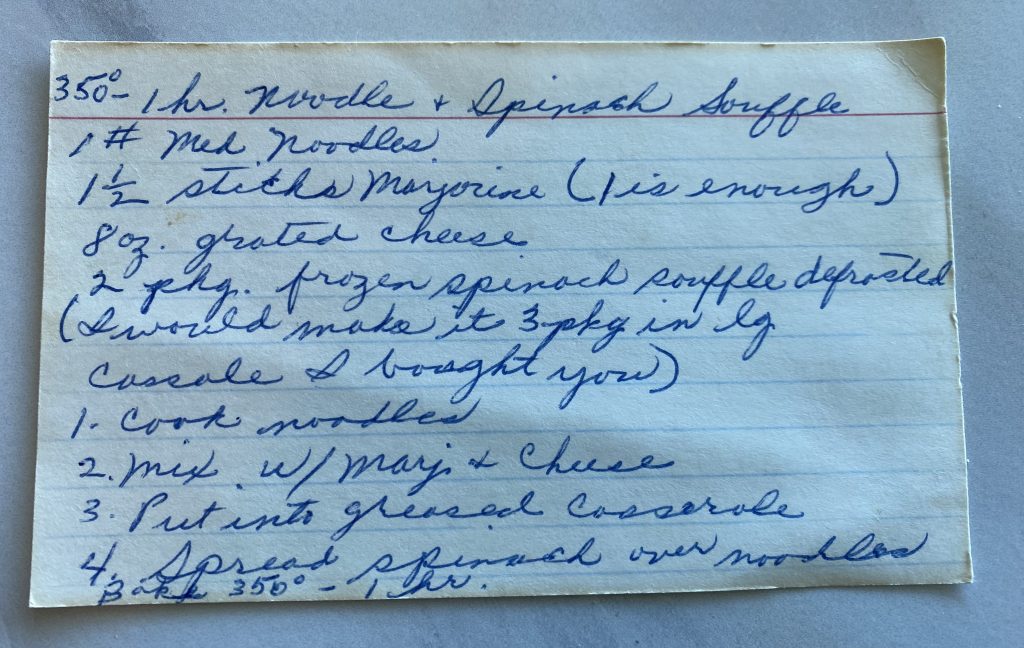 350°- 1 hr. Noodle + Spinach Souffle
1 # Med. Noodles
1 1/2 sticks Marjorine (1 is enough)
8 oz. grated cheese
2 pkg. frozen spinach souffle defrosted
(I would make it 3 pkg in lg
cassole I bought you)
1. Cook noodles
2. Mix w/ Marj. + Cheese
3. Put into greased casserole
4. Spread spinach over noodles
Bake 350° - 1 hr.